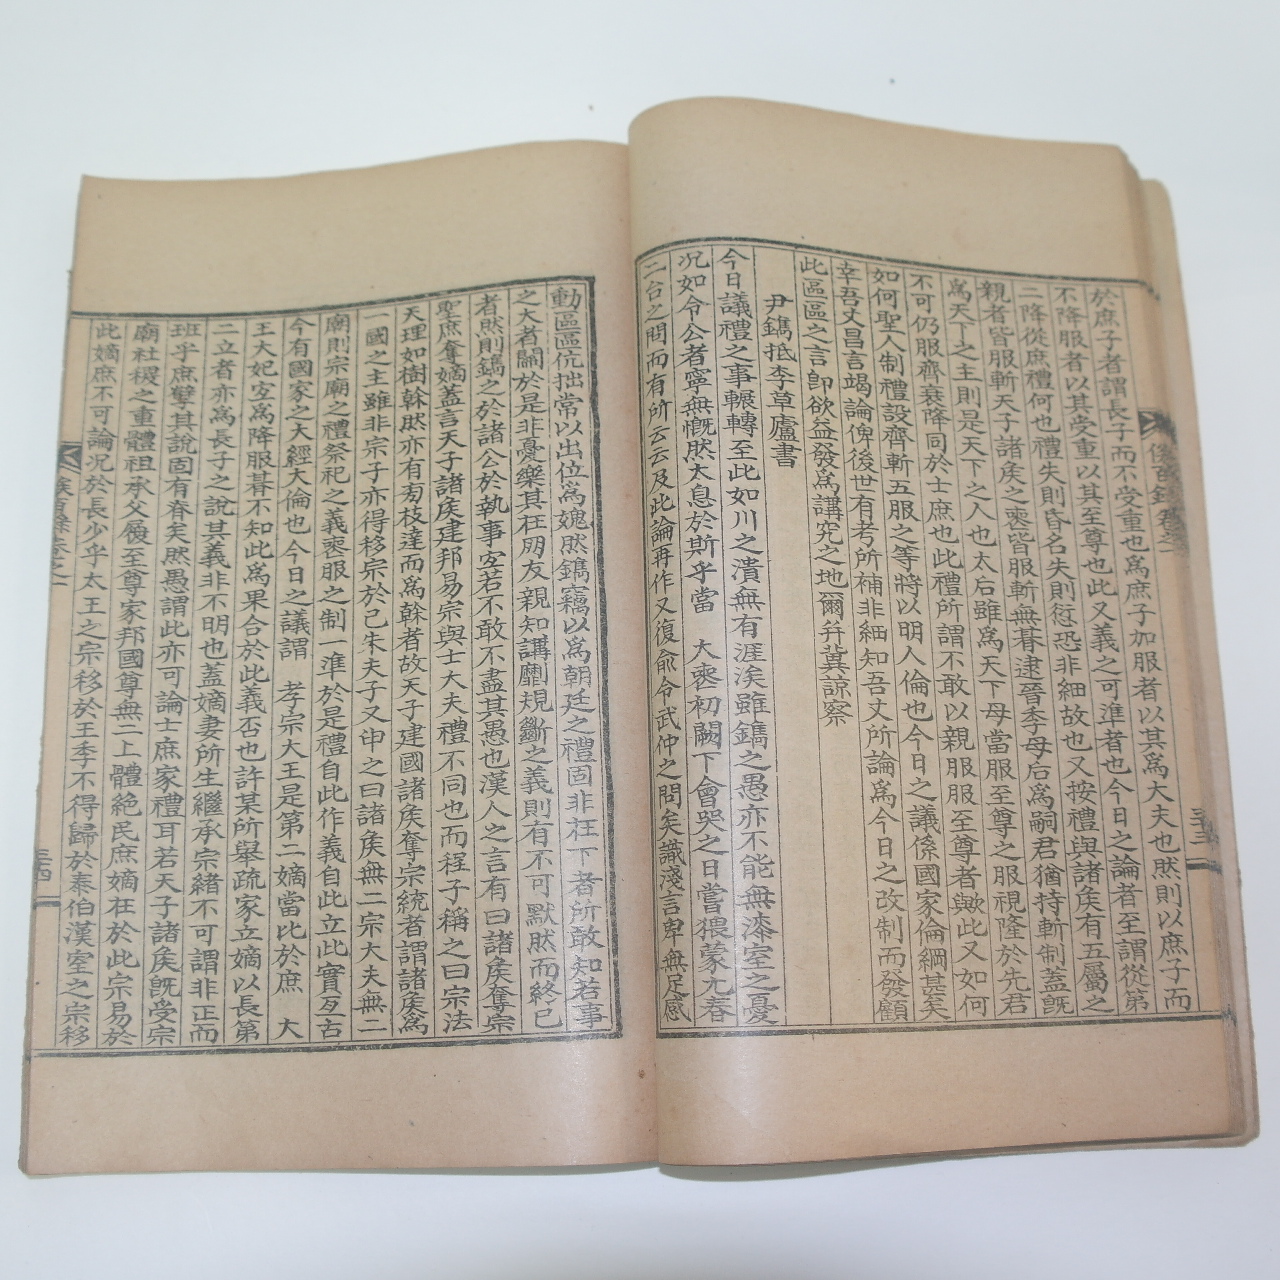 於庶子者謂長子而不受重也爲庶子加服者以其爲大夫也然則以庶子而
不降服者以其受重以其至尊也此又義之可準者也今日之論者至謂從第
二降從庶禮何也禮失則昏名失則愆恐非細故也又按禮與諸矦有五屬之
親者皆服斬天子諸矦之喪皆服斬無朞逮晉李母后爲嗣君猶持斬制蓋旣
爲天下之主則是天下之人也太后雖爲天下母當服至尊之服視隆於先君
不可仍服齊衰降同於士庶也此禮所謂不敢以親服服至尊者歟此又如何
如何聖人制禮設齊斬五服之等將以明人倫也今日之議係國家倫綱甚矣
幸吾丈昌言竭論俾後世有考所補非細知吾丈所論爲今日之改制而發顧
此區區之言卽欲益發爲講究之地爾幷冀諒察
尹鐫抵李草廬書
今日議禮之事輾轉至此如川之潰無有涯涘雖鐫之愚亦不能無漆室之憂
况如令公者寧無慨然太息於斯乎當 大喪初闕下會哭之日嘗猥蒙尤春
二台之問而有所云云及此論再作又復兪令武仲之問矣識淺言卑無足感
動區區伉拙常以出位爲媿然鐫竊以爲朝廷之禮固非在下者所敢知若事
之大者關於是非憂樂其在朋友親知講劘規斵之義則有不可默然而終已
者然則鐫之於諸公於執事安若不敢不盡其愚也漢人之言有曰諸矦奪宗
聖庶奪嫡蓋言天子諸矦建邦易宗與士大夫禮不同也而程子稱之曰宗法
天理如樹榦然亦有旁枝達而爲榦者故天子建國諸矦奪宗統者謂諸矦爲
一國之主雖非宗子亦得移宗於己朱夫子又申之曰諸矦無二宗大夫無二
廟則宗廟之禮祭祀之義喪服之制一準於是禮自此作義自此立此實亙古
今有國家之大經大倫也今日之議謂 孝宗大王是第二嫡當比於庶 大
王大妃宜爲降服朞不知此爲果合於此義否也許某所舉疏家立嫡以長第
二立者亦爲長子之說其義非不明也蓋嫡妻所生繼承宗緒不可謂非正而
班乎庶孼其說固有眷矣然愚謂此亦可論士庶家禮耳若天子諸矦旣受宗
廟社稷之重體祖承父履至尊家邦國尊無二上體絶民庶嫡在於此宗易於
此嫡庶不可論况於長少乎太王之宗移於王季不得歸於泰伯漢室之宗移